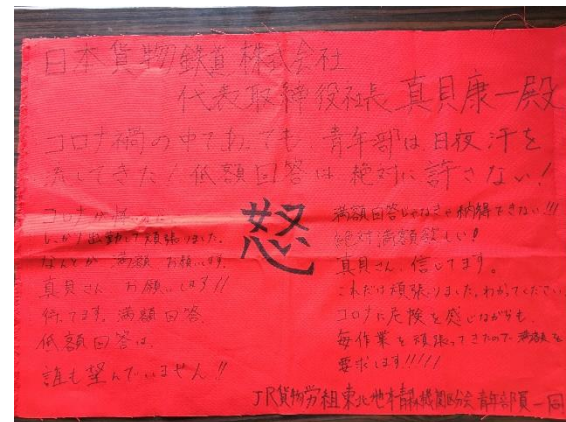 日本貨物鉄道株式会社
代表取締役社長 真貝康一殿
コロナ禍の中であっても 青年部は日夜汗を
流してきた!低額回答は絶対に許さない!
怒
コロナが怖い
しっかり出勤して頑張りました。
なんとか 満額 お願いします。
真貝さん お願いします!!
待ってます。満額回答。
低額回答は、
誰も望んでいません!!
満額回答じゃなきゃ納得できない!!!
絶対満額欲しい!
真貝さん、信じてます。
これだけ頑張りました。わかってください
コロナに危険を感じながらも
毎作業を頑張ってきたので 満額を
要求します!!!!!
JR貨物労組東北地本青森機関区分会青年部員一同